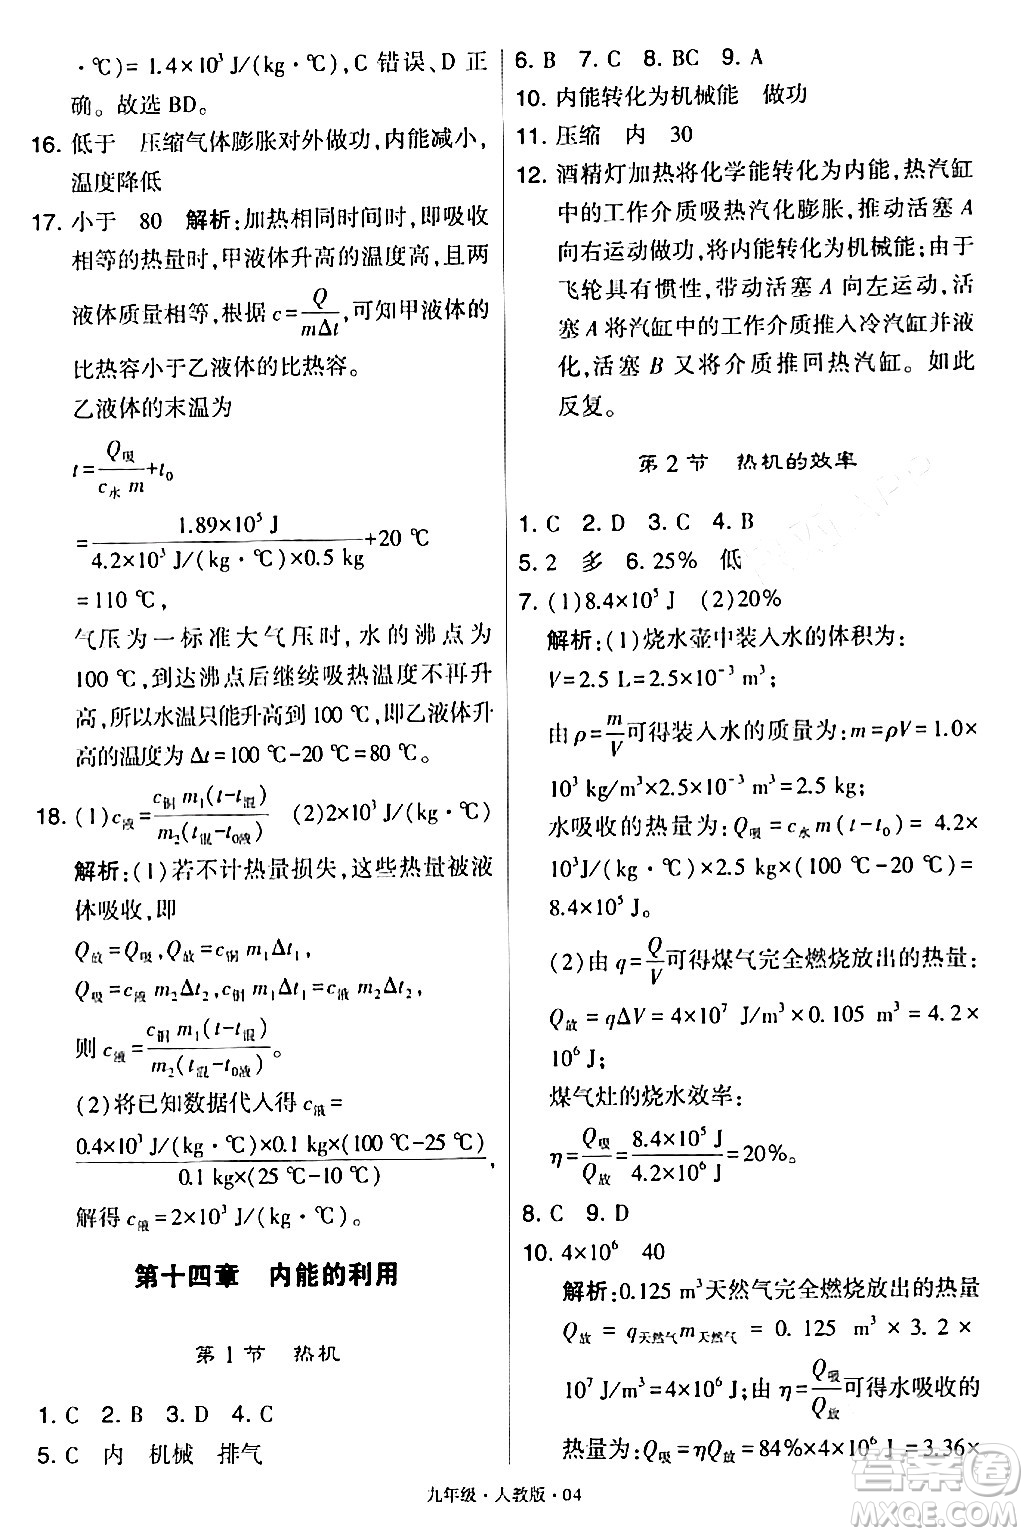 ·℃)=1.4×10³ J/(kg·℃),C 错误、D 正
确。故选 BD。
16. 低于　压缩气体膨胀对外做功,内能减小,
温度降低
17. 小于　80　解析:加热相同时间时,即吸收
相等的热量时,甲液体升高的温度高,且两
液体质量相等,根据 c=Q/(mΔt),可知甲液体的
比热容小于乙液体的比热容。
乙液体的末温为
t=Q吸/(c水 m)+t₀
=1.89×10⁵ J/(4.2×10³ J/(kg·℃)×0.5 kg)+20 ℃
=110 ℃,
气压为一标准大气压时,水的沸点为
100 ℃,到达沸点后继续吸热温度不再升
高,所以水温只能升高到 100 ℃,即乙液体升
高的温度为 Δt=100 ℃-20 ℃=80 ℃。
18. (1)c液=c铜 m₁(t-t混)/(m₂(t混-t0液))　(2)2×10³ J/(kg·℃)
解析:(1)若不计热量损失,这些热量被液
体吸收,即
Q放=Q吸,Q放=c铜 m₁Δt₁,
Q吸=c液 m₂Δt₂,c铜 m₁Δt₁=c液 m₂Δt₂,
则 c液=c铜 m₁(t-t混)/(m₂(t混-t0液))。
(2)将已知数据代入得 c液=
0.4×10³ J/(kg·℃)×0.1 kg×(100 ℃-25 ℃)/(0.1 kg×(25 ℃-10 ℃)),
解得 c液=2×10³ J/(kg·℃)。
第十四章　内能的利用
第 1 节　热机
1. C　2. B　3. D　4. C
5. C　内　机械　排气
6. B　7. C　8. BC　9. A
10. 内能转化为机械能　做功
11. 压缩　内　30
12. 酒精灯加热将化学能转化为内能,热汽缸
中的工作介质吸热汽化膨胀,推动活塞 A
向右运动做功,内能转化为机械能;由于
飞轮具有惯性,带动活塞 A 向左运动,活
塞 A 将汽缸中的工作介质推入冷汽缸并液
化,活塞 B 又将介质推回热汽缸。如此
反复。
第 2 节　热机的效率
1. C　2. D　3. C　4. B
5. 2　多　6. 25%　低
7. (1)8.4×10⁵ J　(2)20%
解析:(1)烧水壶中装入水的体积为:
V=2.5 L=2.5×10⁻³ m³;
由 ρ=m/V可得装入水的质量为:m=ρV=1.0×
10³ kg/m³×2.5×10⁻³ m³=2.5 kg;
水吸收的热量为:Q吸=c水 m(t-t₀)=4.2×
10³J/(kg·℃)×2.5 kg×(100 ℃-20 ℃)=
8.4×10⁵ J。
(2)由 q=Q/V可得煤气完全燃烧放出的热量:
Q放=qΔV=4×10⁷ J/m³×0.105 m³=4.2×
10⁶ J;
煤气灶的烧水效率:
η=Q吸/Q放=8.4×10⁵ J/(4.2×10⁶ J)=20%。
8. C　9. D
10. 4×10⁶　40
解析:0.125 m³天然气完全燃烧放出的热量
Q放=q天然气m天然气=0.125 m³×3.2×
10⁷ J/m³=4×10⁶ J;由 η=Q吸/Q放可得水吸收的
热量为:Q吸=ηQ放=84%×4×10⁶ J=3.36×
九年级·人教版·04
答案圈
MXQE.COM